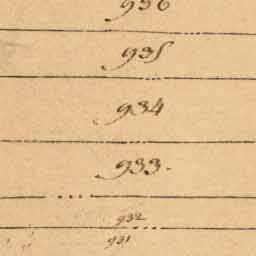 936
935
934
933.
932
931